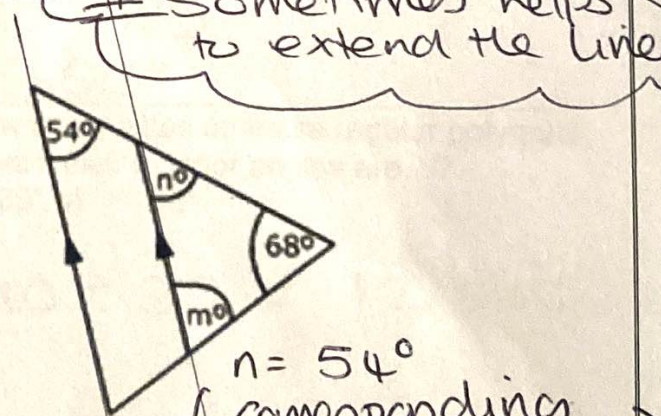 Sometimes helps
to extend the line
54°
n°
68°
m°
n = 54°
(corresponding